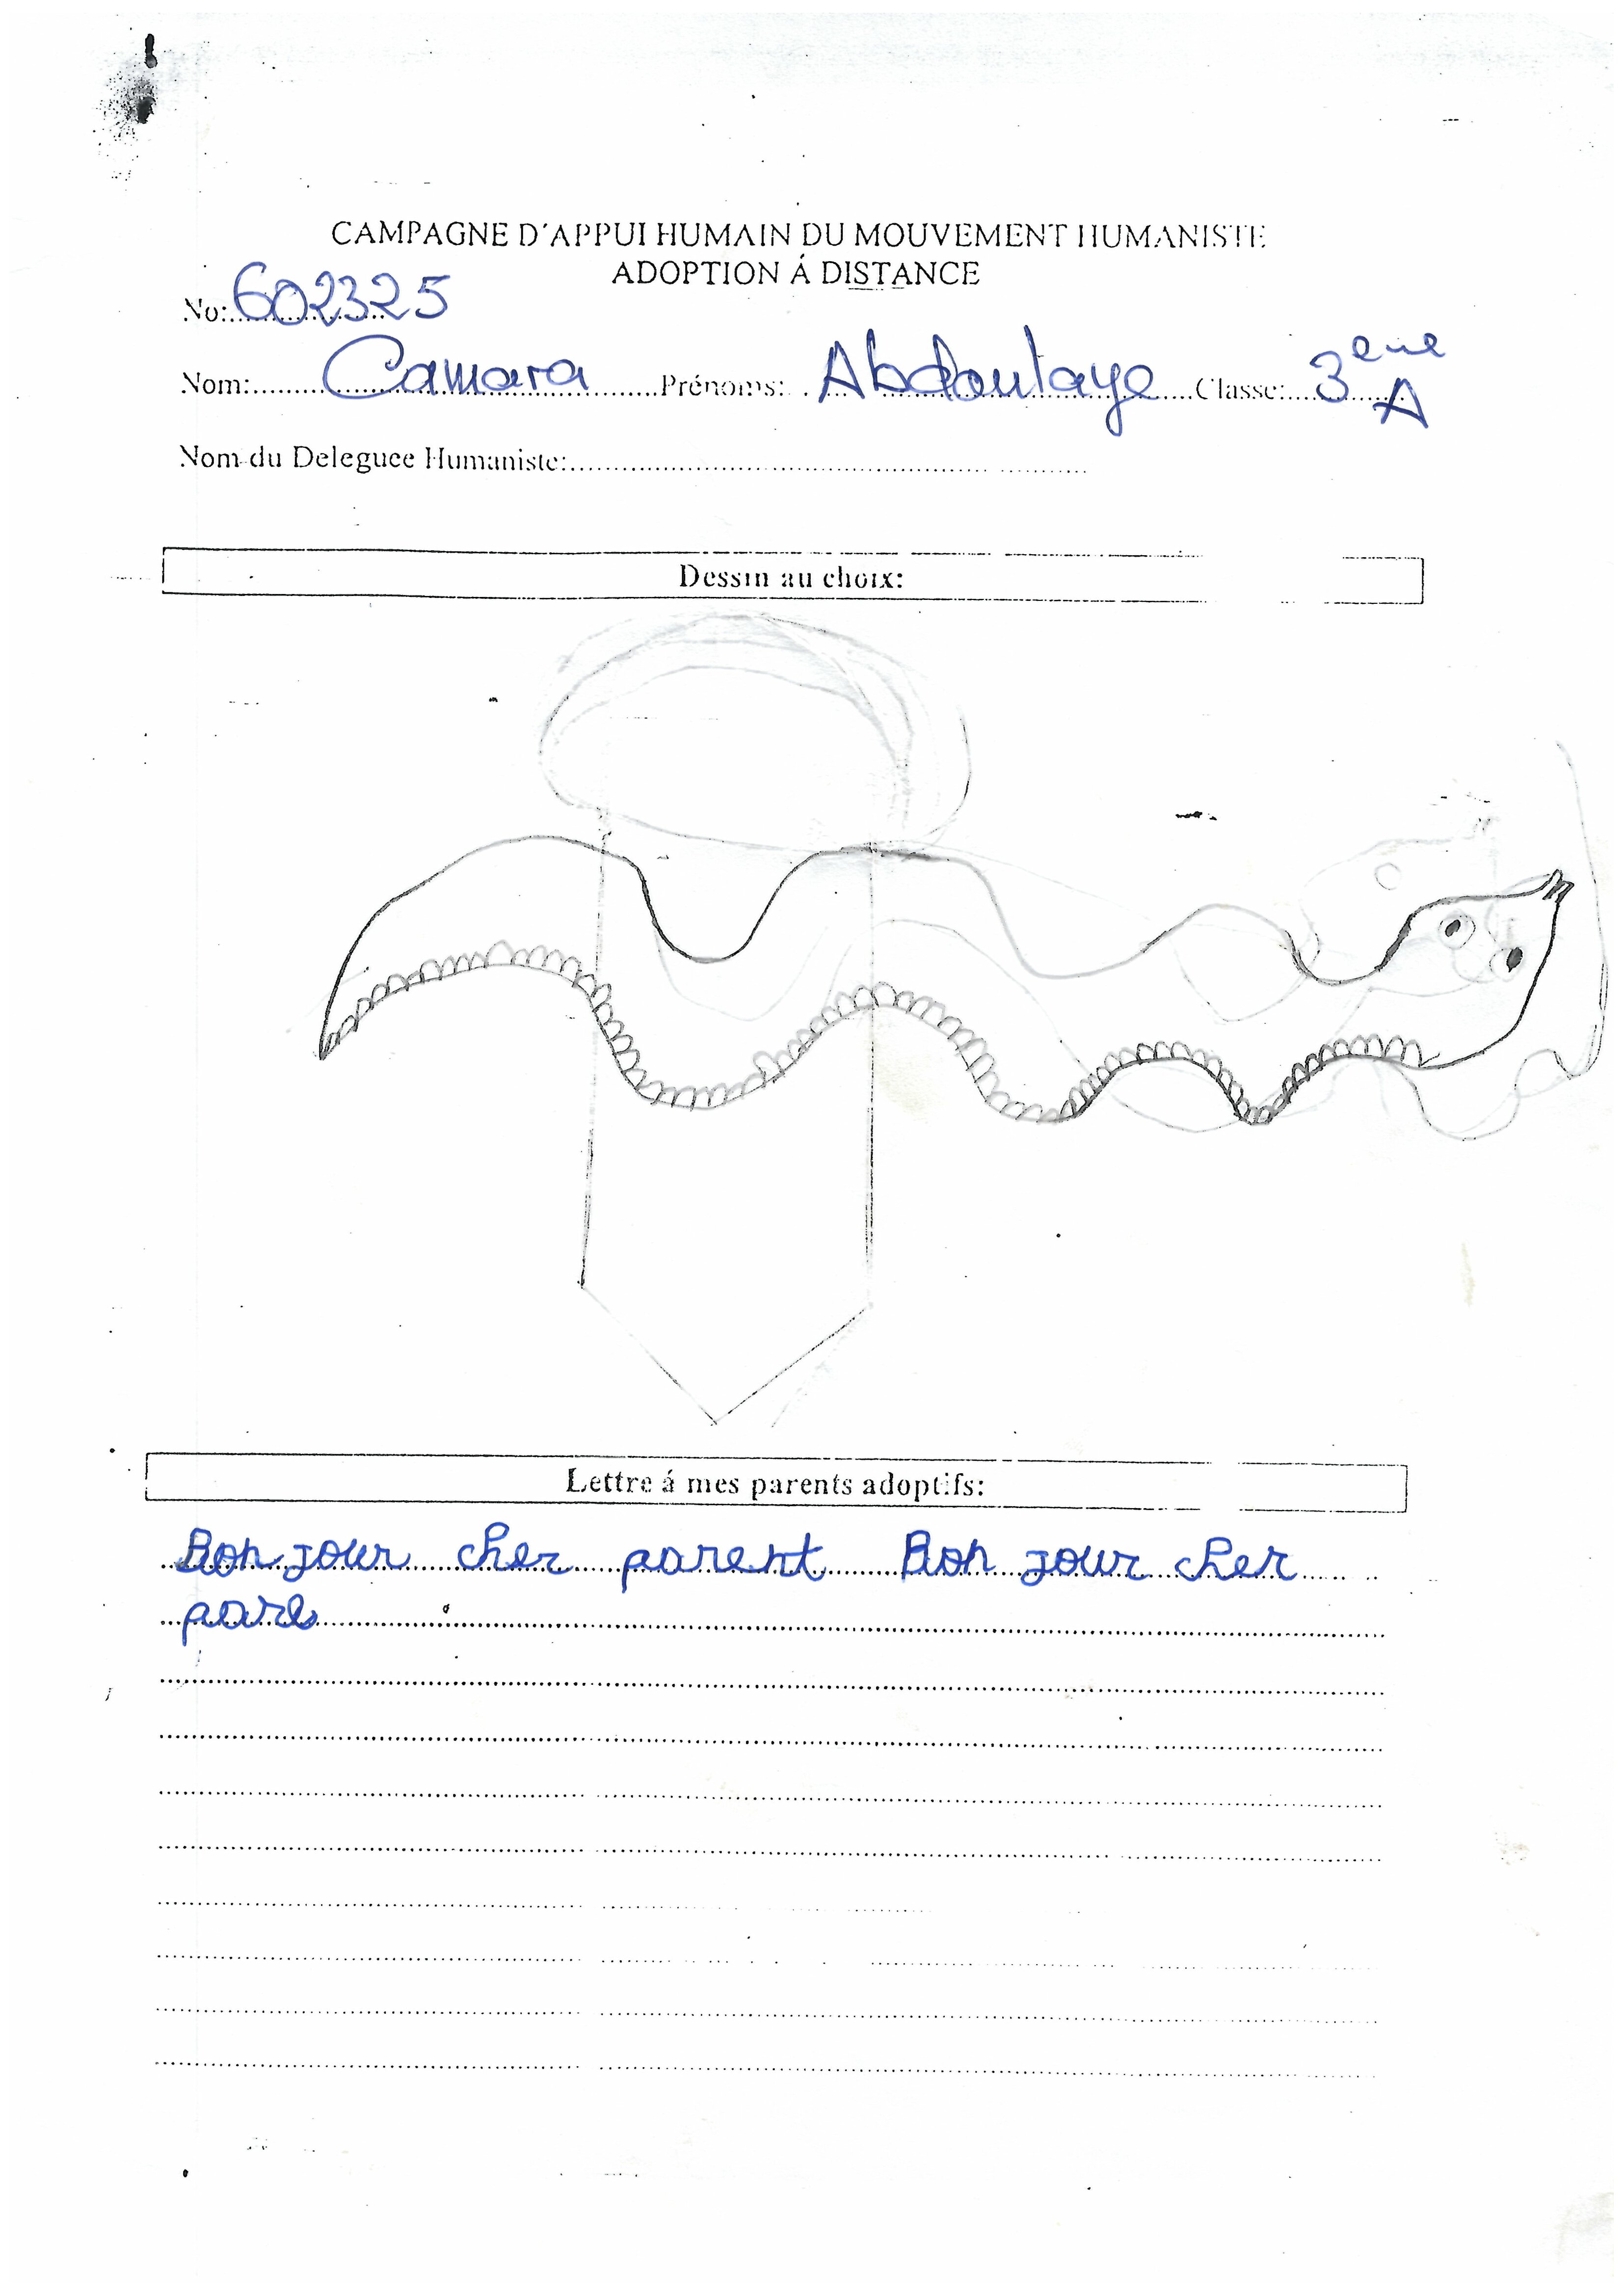 CAMPAGNE D'APPUI HUMAIN DU MOUVEMENT HUMANISTE
ADOPTION Á DISTANCE
No: 602325
Nom: Camara Prénoms: Abdoulaye Classe: 3eme A
Nom du Deleguee Humaniste:
Dessin au choix:
Lettre á mes parents adoptifs:
Bon jour cher parent Bon jour cher
pare